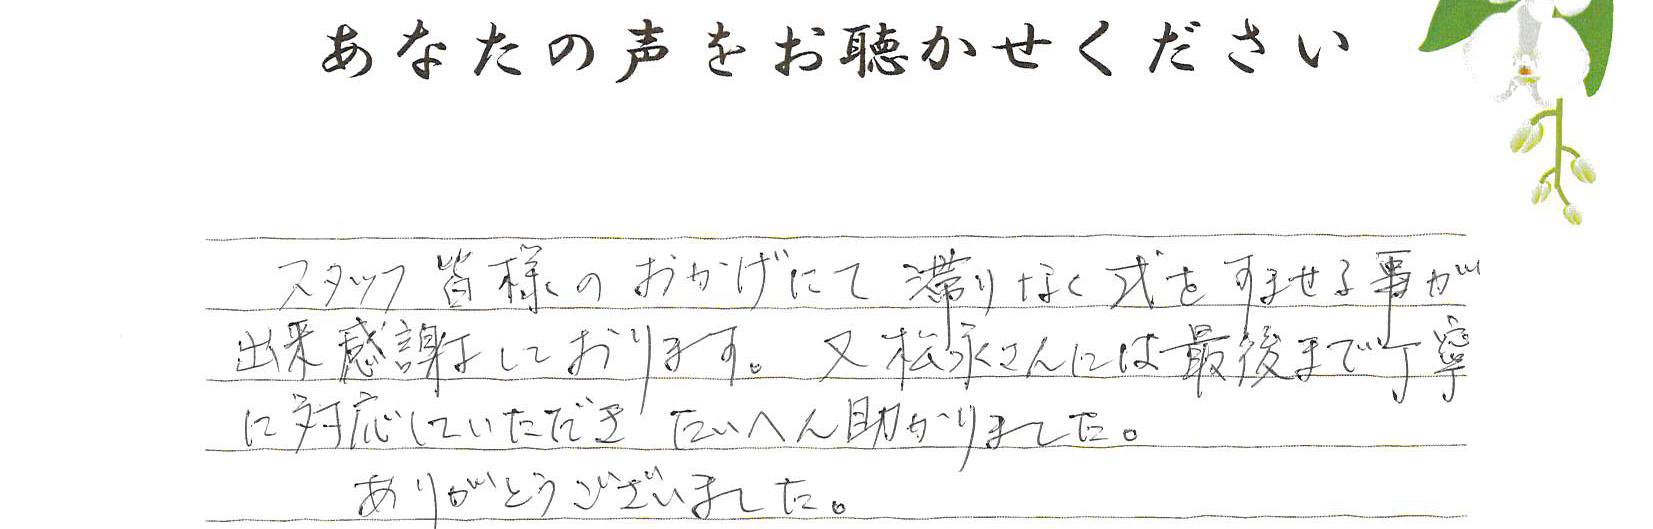 あなたの声をお聴かせください
スタッフ皆様のおかげにて滞りなく式をすませる事が
出来感謝をしております。又松永さんには最後まで丁寧
に対応していただき たいへん助かりました。
ありがとうございました。